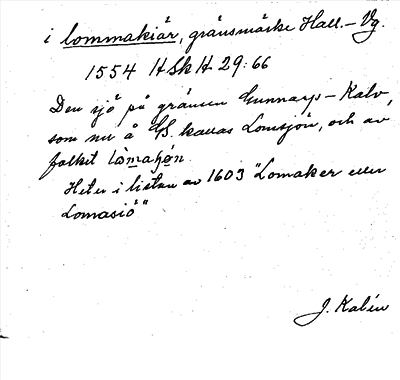 i lommakiär, gränsmärke Hall.-Vg.
1554 HSkH 29:66
Den sjö på gränsen Gunnarp-Kalv,
som nu å GS. kallas Lomsjön, och av
folket lòmahø̀n
Heter i listan av 1603 "Lomaker eller
Lomasiö"
J. Kalén